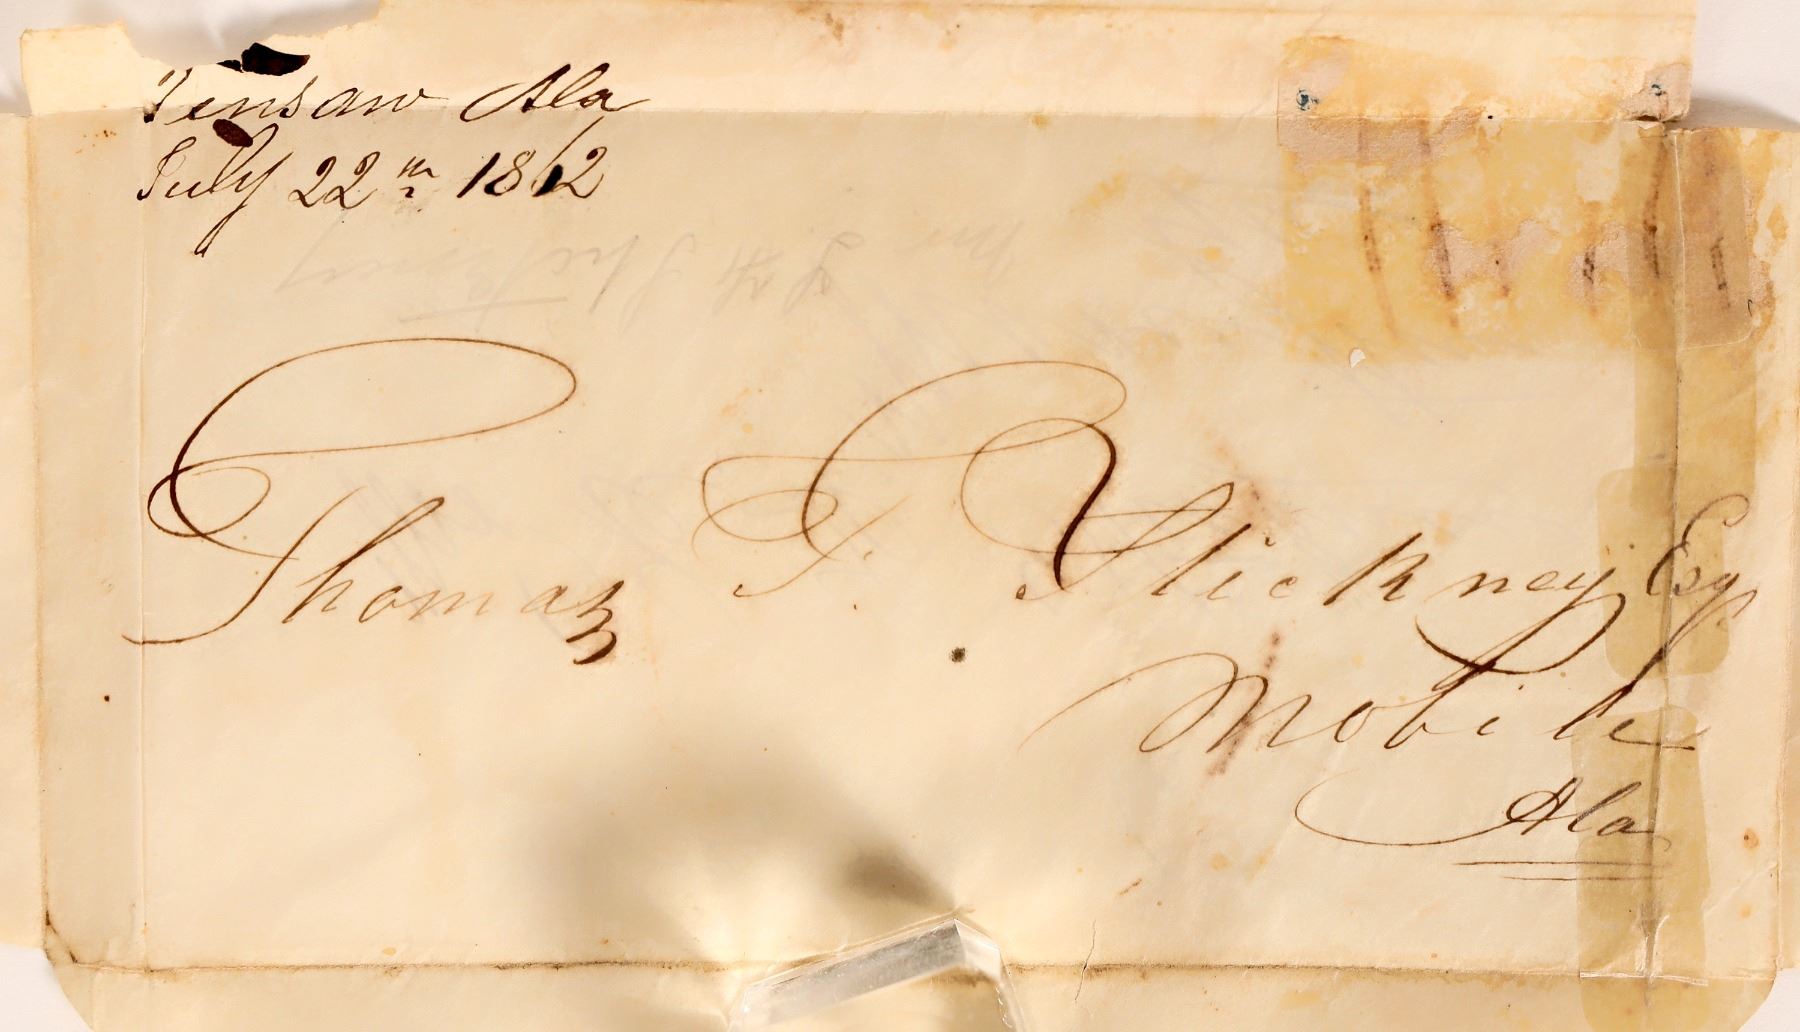 Tensaw Ala
July 22nd 1862
Thomas T. Stickney Esq.
Mobile
Ala